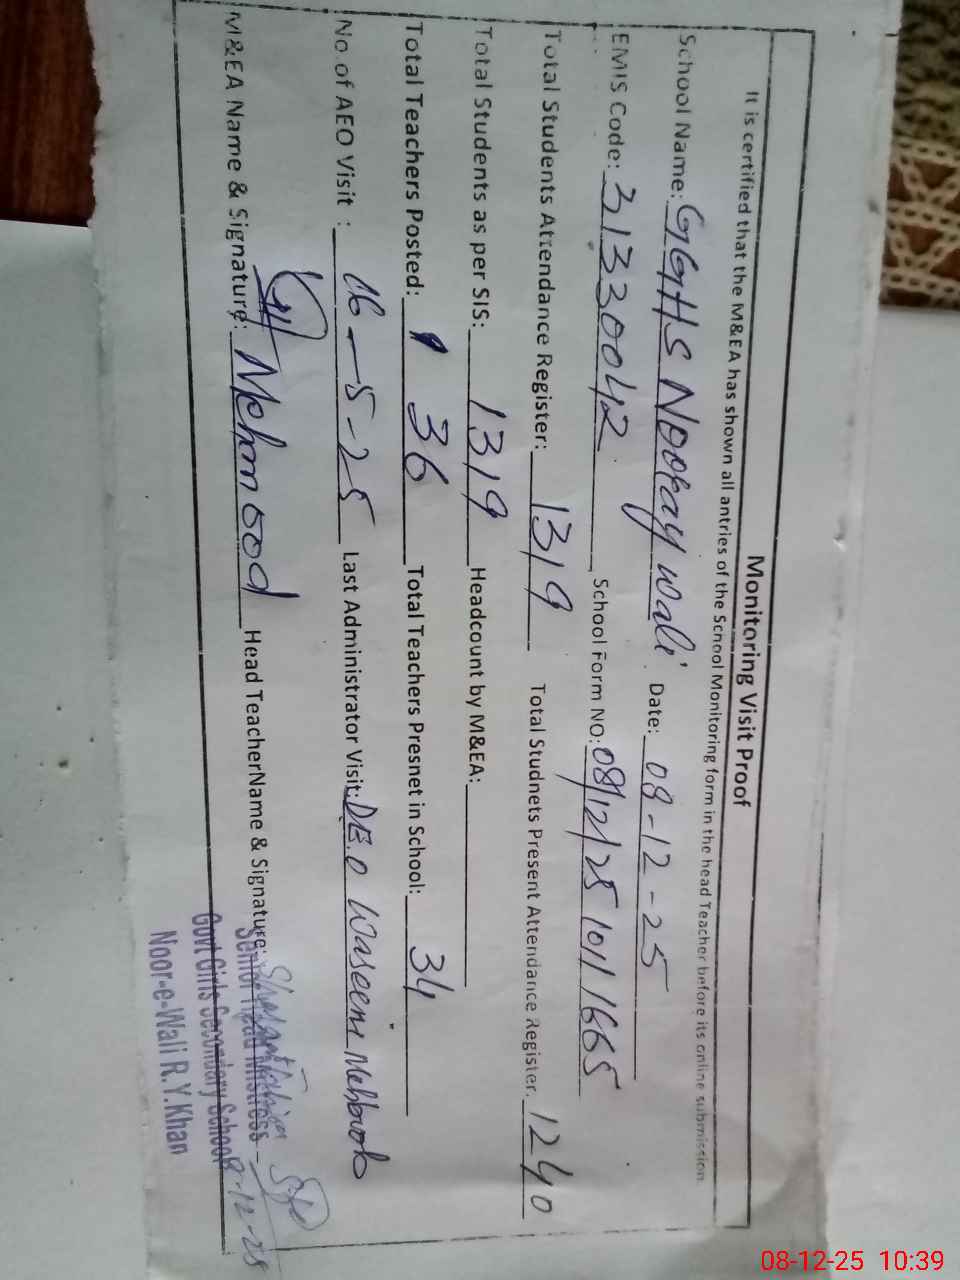 Monitoring Visit Proof
It is certified that the M&EA has shown all antries of the School Monitoring form in the head Teacher before its online submission.
School Name: GGHS Nooray wali Date: 08-12-25
EMIS Code: 31330042 School Form NO: 08/12/25 1011665
Total Students Attendance Register: 1319 Total Studnets Present Attendance Register. 1240
Total Students as per SIS: 1319 Headcount by M&EA:
Total Teachers Posted: 36 Total Teachers Presnet in School: 34
No.of AEO Visit : 16-5-25 Last Administrator Visit: D.E.O Waseem Mehboob
M&EA Name & Signature: Mehmood Head TeacherName & Signature:
Senior Head Mistress
Govt Girls Secondary School 8-12-25
Noor-e-Wali R.Y.Khan
08-12-25 10:39